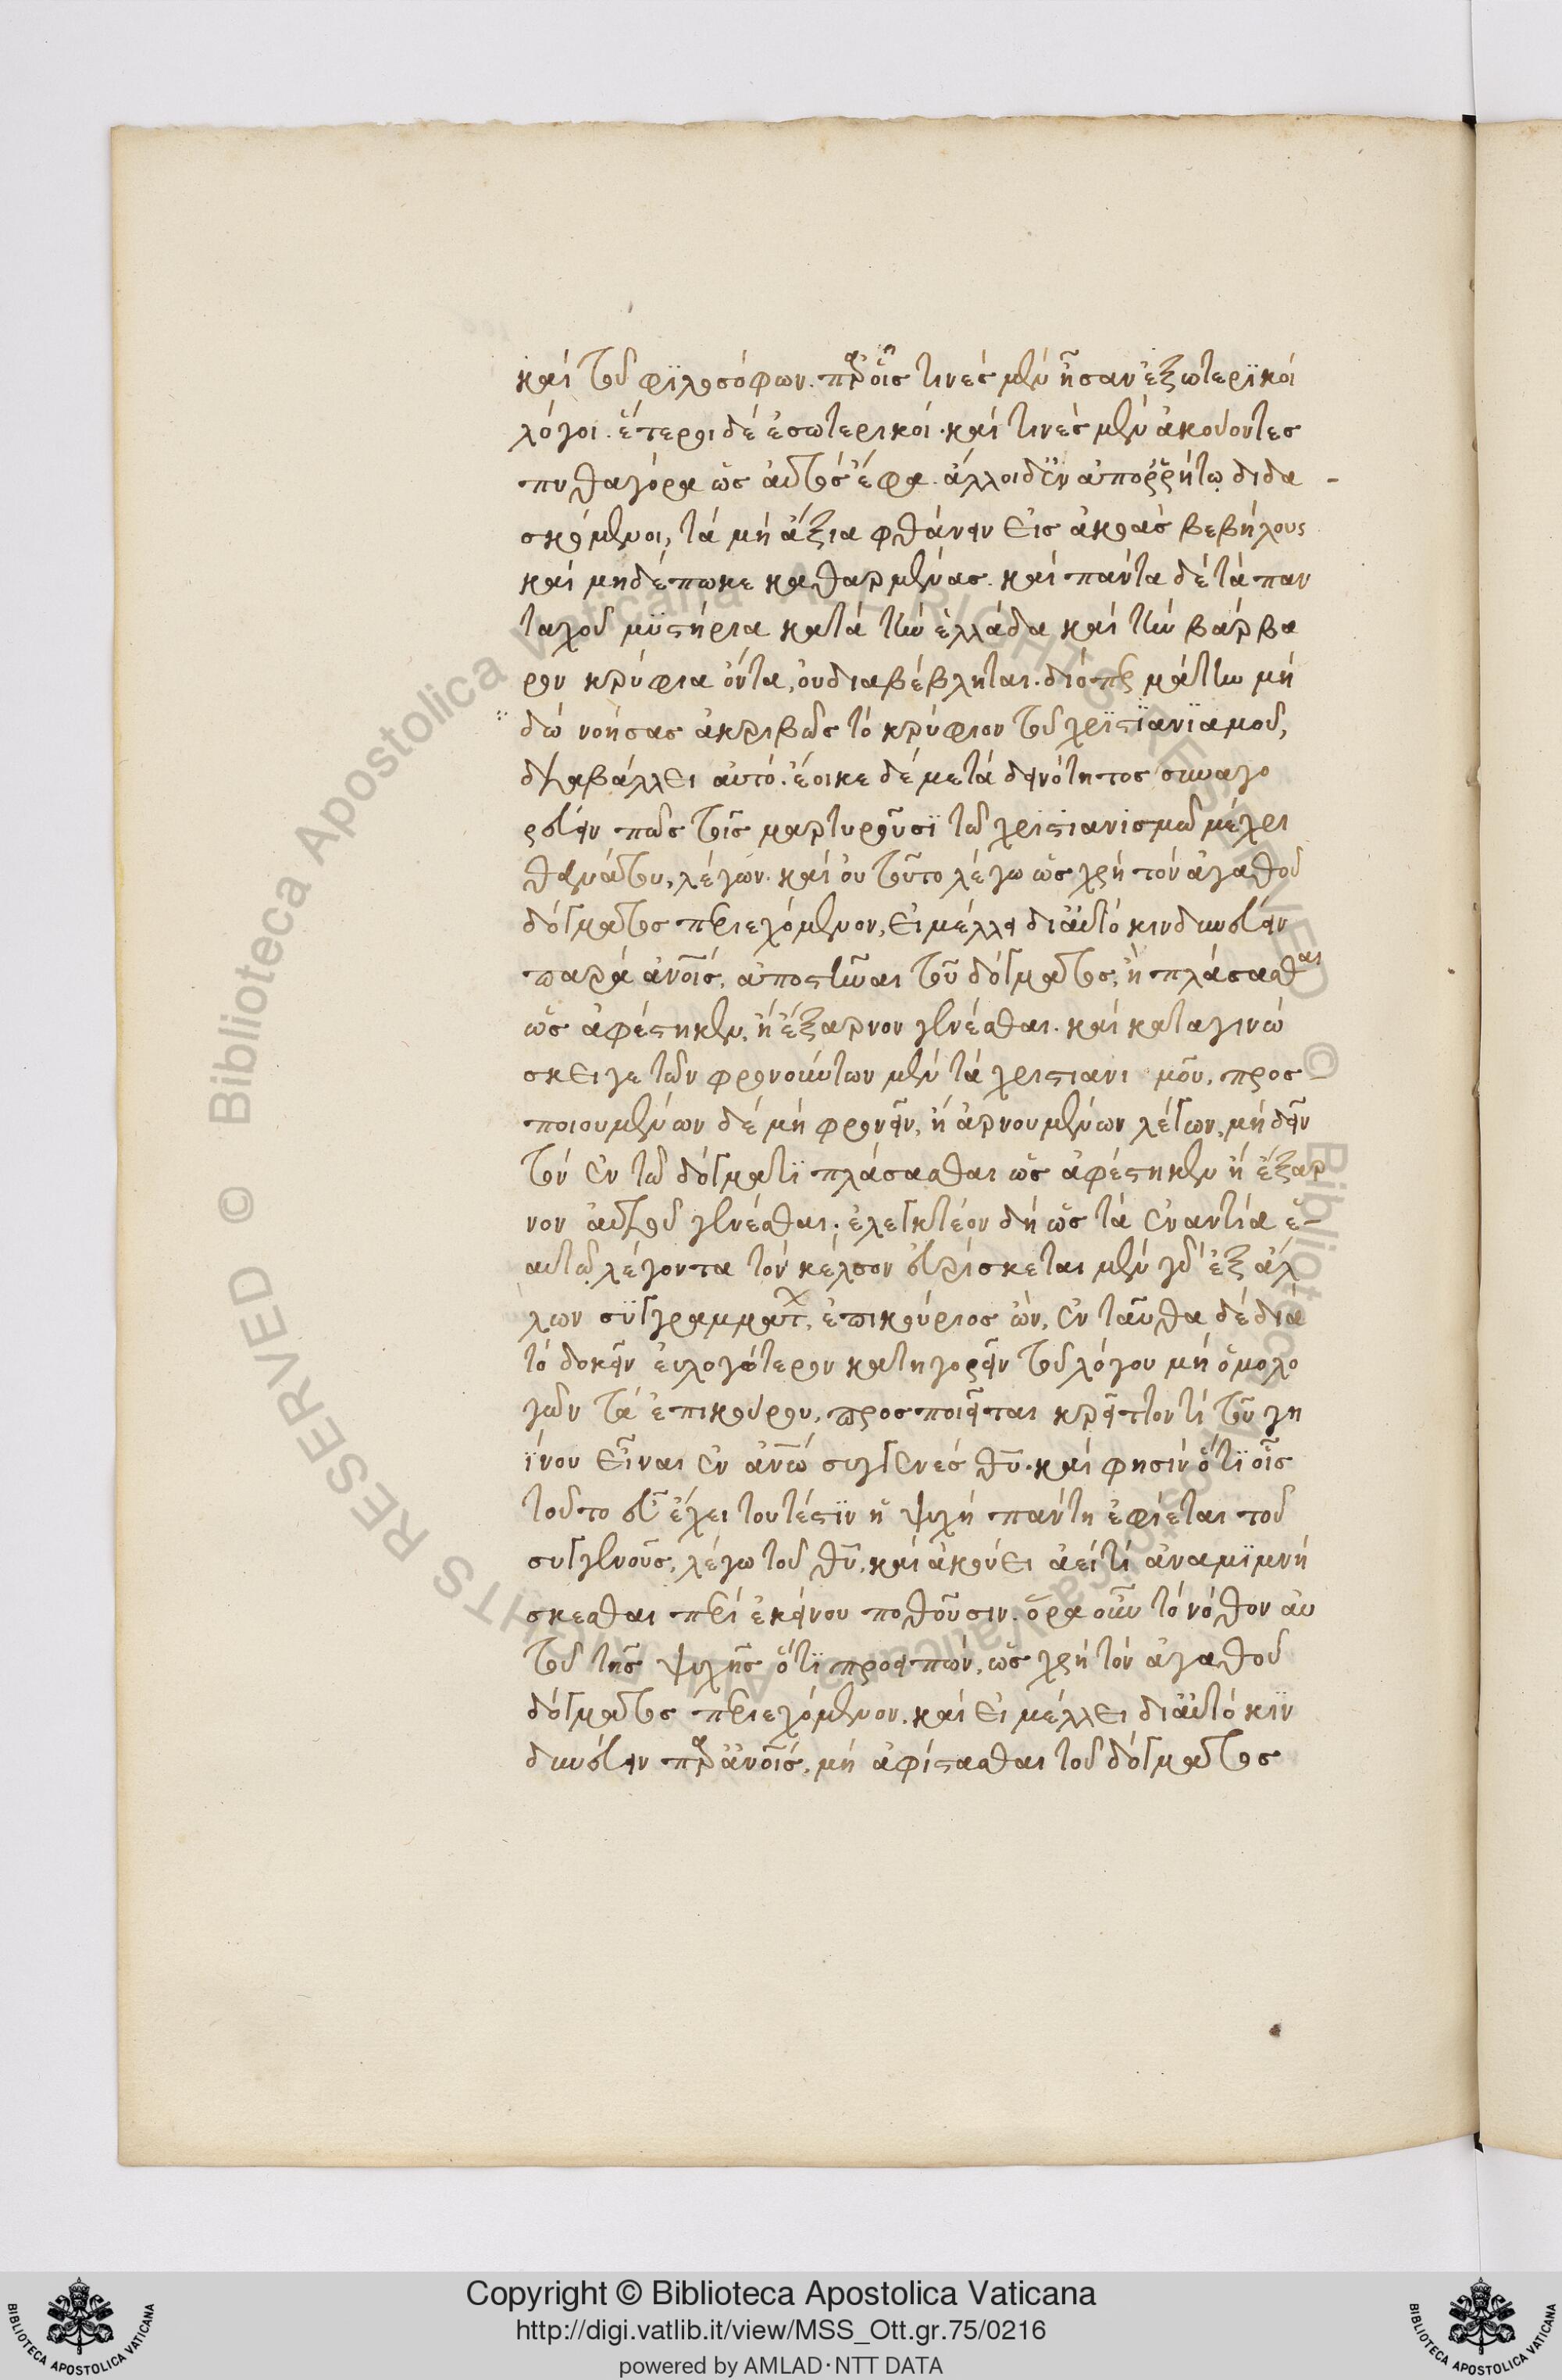 καὶ τοῦ φϊλοσόφων. παρ οἷς τινὲς μὲν ἦσαν ἐξωτερϊκοὶ
λόγοι. ἕτεροι δὲ ἐσωτερικοί. καὶ τινὲς μὲν ἀκούοντες
πυθαγόρα ὡς ἀυτὸς ἔφα. ἄλλοι δ' ἐν ἀπορρήτῳ διδα -
σκόμενοι, τὰ μὴ ἄξια φθάνειν εἰς ἀκοὰς βεβήλους
καὶ μηδέπω κεκαθαρμένας. καὶ πάντα δὲ τὰ παν
ταχοῦ μϋστήρια κατὰ τὴν ἑλλάδα καὶ τὴν βάρβα
ρον κρύφια ὄντα, ὀυ διαβέβληται. διόπερ μάτην μὴ
δὲ νοήσας ἀκριβῶς τὸ κρύφιον τοῦ χρϊστϊανϊσμοῦ,
διαβάλλει αὐτό. ἔοικε δὲ μετὰ δεινότητος συναγο
ρεύειν πως τοῖς μαρτυροῦσϊ τῶ χριστιανισμῶ μέχρι
θανάτου, λέγων. καὶ ὀυ τοῦτο λέγω ὡς χρὴ τὸν ἀγαθοῦ
δόγματος περιεχόμενον, εἰ μέλλει δϊαυτὸ κινδυνεύειν
παρὰ ἀνοις, ἀποστῆναι τοῦ δόγματος, ἢ πλάσασθαι
ὡς ἀφέστηκεν, ἢ ἔξαρνον γενέσθαι. καὶ καταγινώ
σκει γε τῶν φρονούντων μὲν τὰ χριστιανι μοῦ, προσ
ποιουμένων δὲ μὴ φρονεῖν, ἢ ἀρνουμένων λέγων, μὴ δεῖν
τὸν ἐν τῶ δόγματϊ πλάσασθαι ὡς ἀφέστηκεν ἢ ἔξαρ
νον ἀυτοῦ γενέσθαι. ἐλεγκτέον δὴ ὡς τὰ ἐναντία ἑ-
αυτῶ λέγοντα τὸν κέλσον εὑρίσκεται μὲν γὰρ ἐξ ἄλ
λων σϋγγραμμάτ, ἐπικούριος ὢν, ἐν ταῦθα δὲ διὰ
τὸ δοκεῖν εὐλογώτερον κατηγορεῖν τοῦ λόγου μὴ ὁμολο
γῶν τὰ ἐπικούρου, προσποιεῖται κρεῖττον τὶ τοῦ γη
ΐνου εἶναι ἐν ἀνω συγγενὲς θυ. καὶ φησὶν ὅτϊ οἷς
τοῦτο εὖ ἔχει τουτέστϊν ἡ ψυχὴ πάντη ἐφίεται τοῦ
συγγενοῦς, λέγω τοῦ θυ, καὶ ἀκούει ἀεί τι ἀναμϊμνή
σκεσθαι περὶ ἐκείνου ποθοῦσιν. ὅρα οὖν τὸ νόθον ἀυ
τοῦ τῆς ψυχῆς ὅτϊ προειπὼν, ὡς χρὴ τὸν ἀγαθοῦ
δόγματος περιεχόμενον. καὶ εἰ μέλλει δϊαυτὸ κϊν
δυνεύειν παρ ἀνοις, μὴ ἀφίστασθαι τοῦ δόγματος
Copyright © Biblioteca Apostolica Vaticana
http://digi.vatlib.it/view/MSS_Ott.gr.75/0216
powered by AMLAD·NTT DATA
BIBLIOTECA APOSTOLICA VATICANA
BIBLIOTECA APOSTOLICA VATICANA